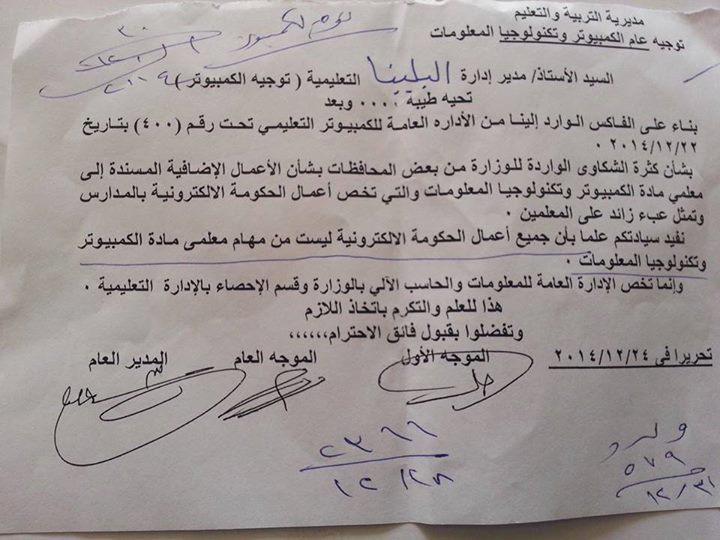 مديرية التربية والتعليم
توجيه عام الكمبيوتر وتكنولوجيا المعلومات
السيد الأستاذ/ مدير إدارة البلينا التعليمية ( توجيه الكمبيوتر )
تحيه طيبة ،،،، وبعد
بناء على الفاكس الوارد إلينا من الأداره العامة للكمبيوتر التعليمي تحت رقم (٤٠٠) بتاريخ
٢٠١٤/١٢/٢٢ ٠
بشأن كثرة الشكاوى الواردة للوزارة من بعض المحافظات بشأن الأعمال الإضافية المسندة إلى
معلمي مادة الكمبيوتر وتكنولوجيا المعلومات والتي تخص أعمال الحكومة الالكترونية بالمدارس
وتمثل عبء زائد على المعلمين ٠
نفيد سيادتكم علما بأن جميع أعمال الحكومة الالكترونية ليست من مهام معلمى مادة الكمبيوتر
وتكنولوجيا المعلومات ٠
وإنما تخص الإدارة العامة للمعلومات والحاسب الآلي بالوزارة وقسم الإحصاء بالإدارة التعليمية ٠
هذا للعلم والتكرم باتخاذ اللازم
وتفضلوا بقبول فائق الاحترام،،،،،،
تحريرا فى ٢٠١٤/١٢/٢٤
الموجه الأول الموجه العام المدير العام
٢٣٦٦
١٢/٢٨
وارد
٥٧٩
١٢/٣١